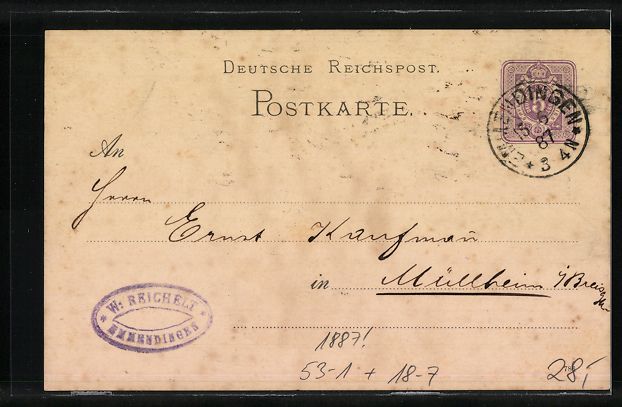 DEUTSCHE REICHSPOST.
POSTKARTE.
EMMENDINGEN
87
3 4N
An
Herrn
Ernst Kaufman
in Müllheim
W: REICHELT
EMMENDINGEN
1887!
53-1 + 18-7
28,-